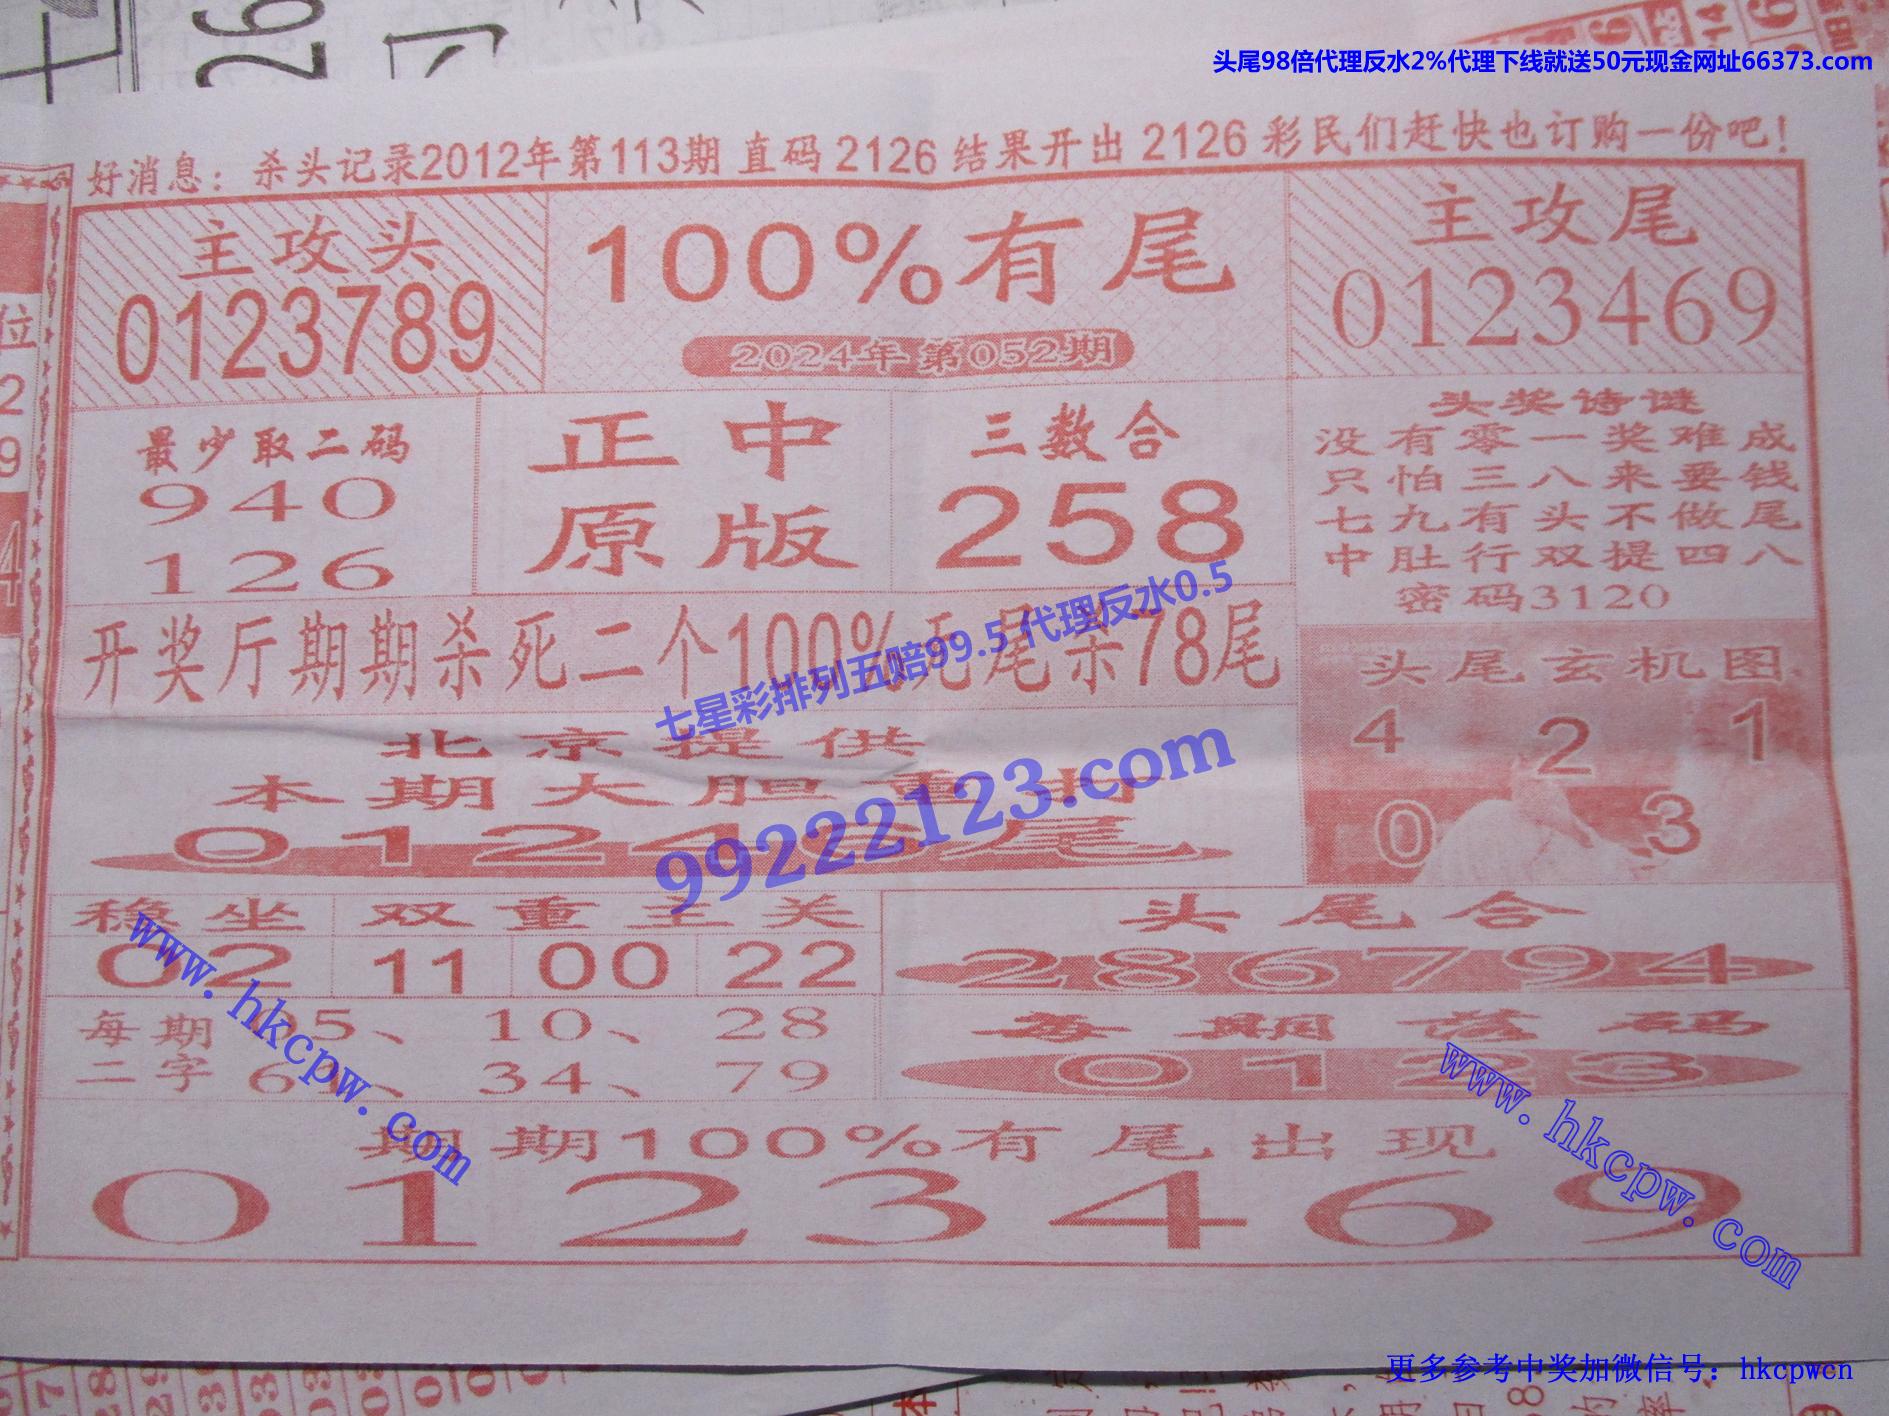 头尾98倍代理反水2%代理下线就送50元现金网址66373.com
好消息：杀头记录2012年第113期 直码 2126 结果开出 2126 彩民们赶快也订购一份吧！
主攻头
0123789
100%有尾
2024年第052期
主攻尾
0123469
最少取二码
940
126
正中
原版
三数合
258
头奖诗谜
没有零一奖难成
只怕三八来要钱
七九有头不做尾
中肚行双提四八
密码3120
开奖厅期期杀死二个100%无尾杀78尾
七星彩排列五赔99.5 代理反水0.5
99222123.com
头尾玄机图
4 2 1
0 3
北京提供
本期大胆重
012 尾
稳坐
02
双重主关
11 00 22
头尾合
286794
每期 05、 10、 28
二字 6 、 34、 79
每期落码
0123
www.hkcpw.com
www.hkcpw.com
期期100%有尾出现
0123469
更多参考中奖加微信号：hkcpwcn